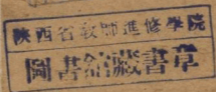 陕西省教師進修學院
圖書館藏書章